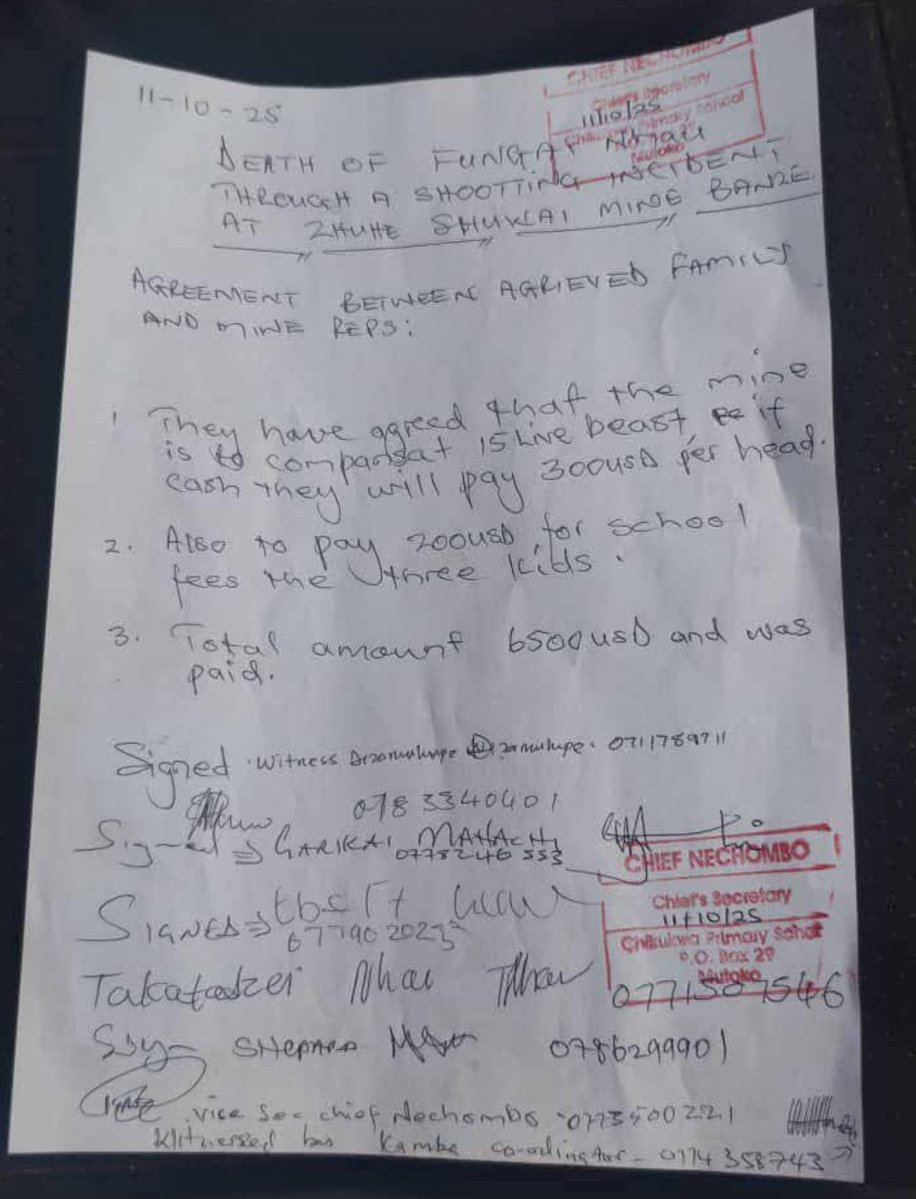 11-10-25
CHIEF NECHOMBO
Chief's Secretary
11/10/25
Chikukwa Primary School
Mutoko
DEATH OF FUNGAI NHAU
THROUGH A SHOOTTING INCIDENT
AT ZHUHE SHUKAI MINE BANZE
AGREEMENT BETWEEN AGRIEVED FAMILY
AND MINE REPS:
1 They have agreed that the mine
is to compansat 15 Live beast, if
cash they will pay 300USD per head.
2. Also to pay 200usD for school
fees the three kids.
3. Total amount 6500usD and was
paid.
Signed Witness 0711789711
0783340401
Signed ⇒ GARIKAI
0778246553
CHIEF NECHOMBO
Chief's Secretary
11/10/25
Chikukwa Primary School
P.O. Box 29
Mutoko
SIGNED ⇒
Takatadzei Nhau 0771507546
SHEPARD 0786299901
vice Sec chief Nechombo - 0773500221
Witnessed by Kambe co-odinator - 0774358743